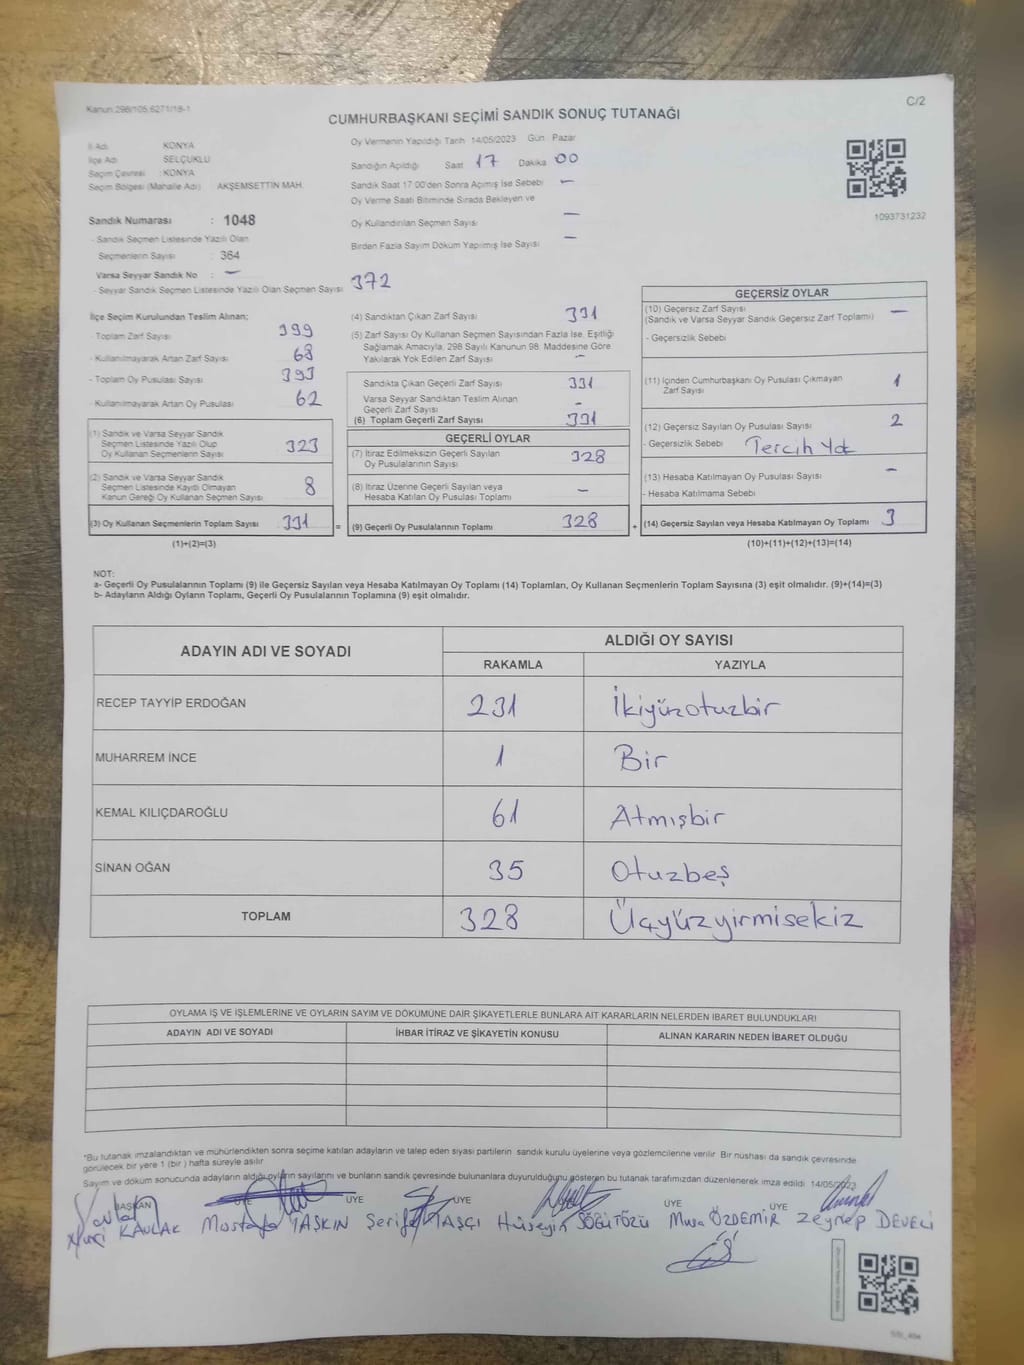 Kanun:298/105,6271/18-1
C/2
CUMHURBAŞKANI SEÇİMİ SANDIK SONUÇ TUTANAĞI
İl Adı KONYA
İlçe Adı SELÇUKLU
Seçim Çevresi : KONYA
Seçim Bölgesi (Mahalle Adı) AKŞEMSETTİN MAH.
Sandık Numarası : 1048
- Sandık Seçmen Listesinde Yazılı Olan
Seçmenlerin Sayısı : 364
Varsa Seyyar Sandık No : —
- Seyyar Sandık Seçmen Listesinde Yazılı Olan Seçmen Sayısı: 372
Oy Vermenin Yapıldığı Tarih 14/05/2023 Gün Pazar
Sandığın Açıldığı Saat 17 Dakika 00
Sandık Saat 17:00'den Sonra Açımış İse Sebebi —
Oy Verme Saati Bitiminde Sırada Bekleyen ve
Oy Kullandırılan Seçmen Sayısı —
Birden Fazla Sayım Döküm Yapılmış İse Sayısı —
1093731232
İlçe Seçim Kurulundan Teslim Alınan;
- Toplam Zarf Sayısı 399
- Kullanılmayarak Artan Zarf Sayısı 68
- Toplam Oy Pusulası Sayısı 393
- Kullanılmayarak Artan Oy Pusulası 62
(1) Sandık ve Varsa Seyyar Sandık
Seçmen Listesinde Yazılı Olup
Oy Kullanan Seçmenlerin Sayısı 323
(2) Sandık ve Varsa Seyyar Sandık
Seçmen Listesinde Kayıtlı Olmayan
Kanun Gereği Oy Kullanan Seçmen Sayısı 8
(3) Oy Kullanan Seçmenlerin Toplam Sayısı 331 =
(1)+(2)=(3)
(4) Sandıktan Çıkan Zarf Sayısı 331
(5) Zarf Sayısı Oy Kullanan Seçmen Sayısından Fazla İse, Eşitliği
Sağlamak Amacıyla, 298 Sayılı Kanunun 98. Maddesine Göre
Yakılarak Yok Edilen Zarf Sayısı —
Sandıkta Çıkan Geçerli Zarf Sayısı 331
Varsa Seyyar Sandıktan Teslim Alınan
Geçerli Zarf Sayısı -
(6) Toplam Geçerli Zarf Sayısı 331
GEÇERLİ OYLAR
(7) İtiraz Edilmeksizin Geçerli Sayılan
Oy Pusulalarının Sayısı 328
(8) İtiraz Üzerine Geçerli Sayılan veya
Hesaba Katılan Oy Pusulası Toplamı —
(9) Geçerli Oy Pusulalarının Toplamı 328 +
GEÇERSİZ OYLAR
(10) Geçersiz Zarf Sayısı
(Sandık ve Varsa Seyyar Sandık Geçersiz Zarf Toplamı) —
- Geçersizlik Sebebi
(11) İçinden Cumhurbaşkanı Oy Pusulası Çıkmayan
Zarf Sayısı 1
(12) Geçersiz Sayılan Oy Pusulası Sayısı 2
- Geçersizlik Sebebi Tercih Yok
(13) Hesaba Katılmayan Oy Pusulası Sayısı —
- Hesaba Katılmama Sebebi
(14) Geçersiz Sayılan veya Hesaba Katılmayan Oy Toplamı 3
(10)+(11)+(12)+(13)=(14)
NOT:
a- Geçerli Oy Pusulalarının Toplamı (9) ile Geçersiz Sayılan veya Hesaba Katılmayan Oy Toplamı (14) Toplamları, Oy Kullanan Seçmenlerin Toplam Sayısına (3) eşit olmalıdır. (9)+(14)=(3)
b- Adayların Aldığı Oyların Toplamı, Geçerli Oy Pusulalarının Toplamına (9) eşit olmalıdır.
ADAYIN ADI VE SOYADI ALDIĞI OY SAYISI
RAKAMLA YAZIYLA
RECEP TAYYİP ERDOĞAN 231 İkiyüzotuzbir
MUHARREM İNCE 1 Bir
KEMAL KILIÇDAROĞLU 61 Atmışbir
SİNAN OĞAN 35 Otuzbeş
TOPLAM 328 Üçyüzyirmisekiz
OYLAMA İŞ VE İŞLEMLERİNE VE OYLARIN SAYIM VE DÖKÜMÜNE DAİR ŞİKAYETLERLE BUNLARA AİT KARARLARIN NELERDEN İBARET BULUNDUKLARI
ADAYIN ADI VE SOYADI İHBAR İTİRAZ VE ŞİKAYETİN KONUSU ALINAN KARARIN NEDEN İBARET OLDUĞU
*Bu tutanak imzalandıktan ve mühürlendikten sonra seçime katılan adayların ve talep eden siyasi partilerin sandık kurulu üyelerine veya gözlemcilerine verilir. Bir nüshası da sandık çevresinde
görülecek bir yere 1 (bir) hafta süreyle asılır
Sayım ve döküm sonucunda adayların aldığı oyların sayılarını ve bunların sandık çevresinde bulunanlara duyurulduğunu gösteren bu tutanak tarafımızdan düzenlenerek imza edildi 14/05/2023
BAŞKAN ÜYE ÜYE ÜYE ÜYE ÜYE
KAVLAK Mustafa TAŞKIN Şerife TAŞÇI Hüseyin SÖĞÜTÖZÜ Musa ÖZDEMİR Zeynep DEVELİ